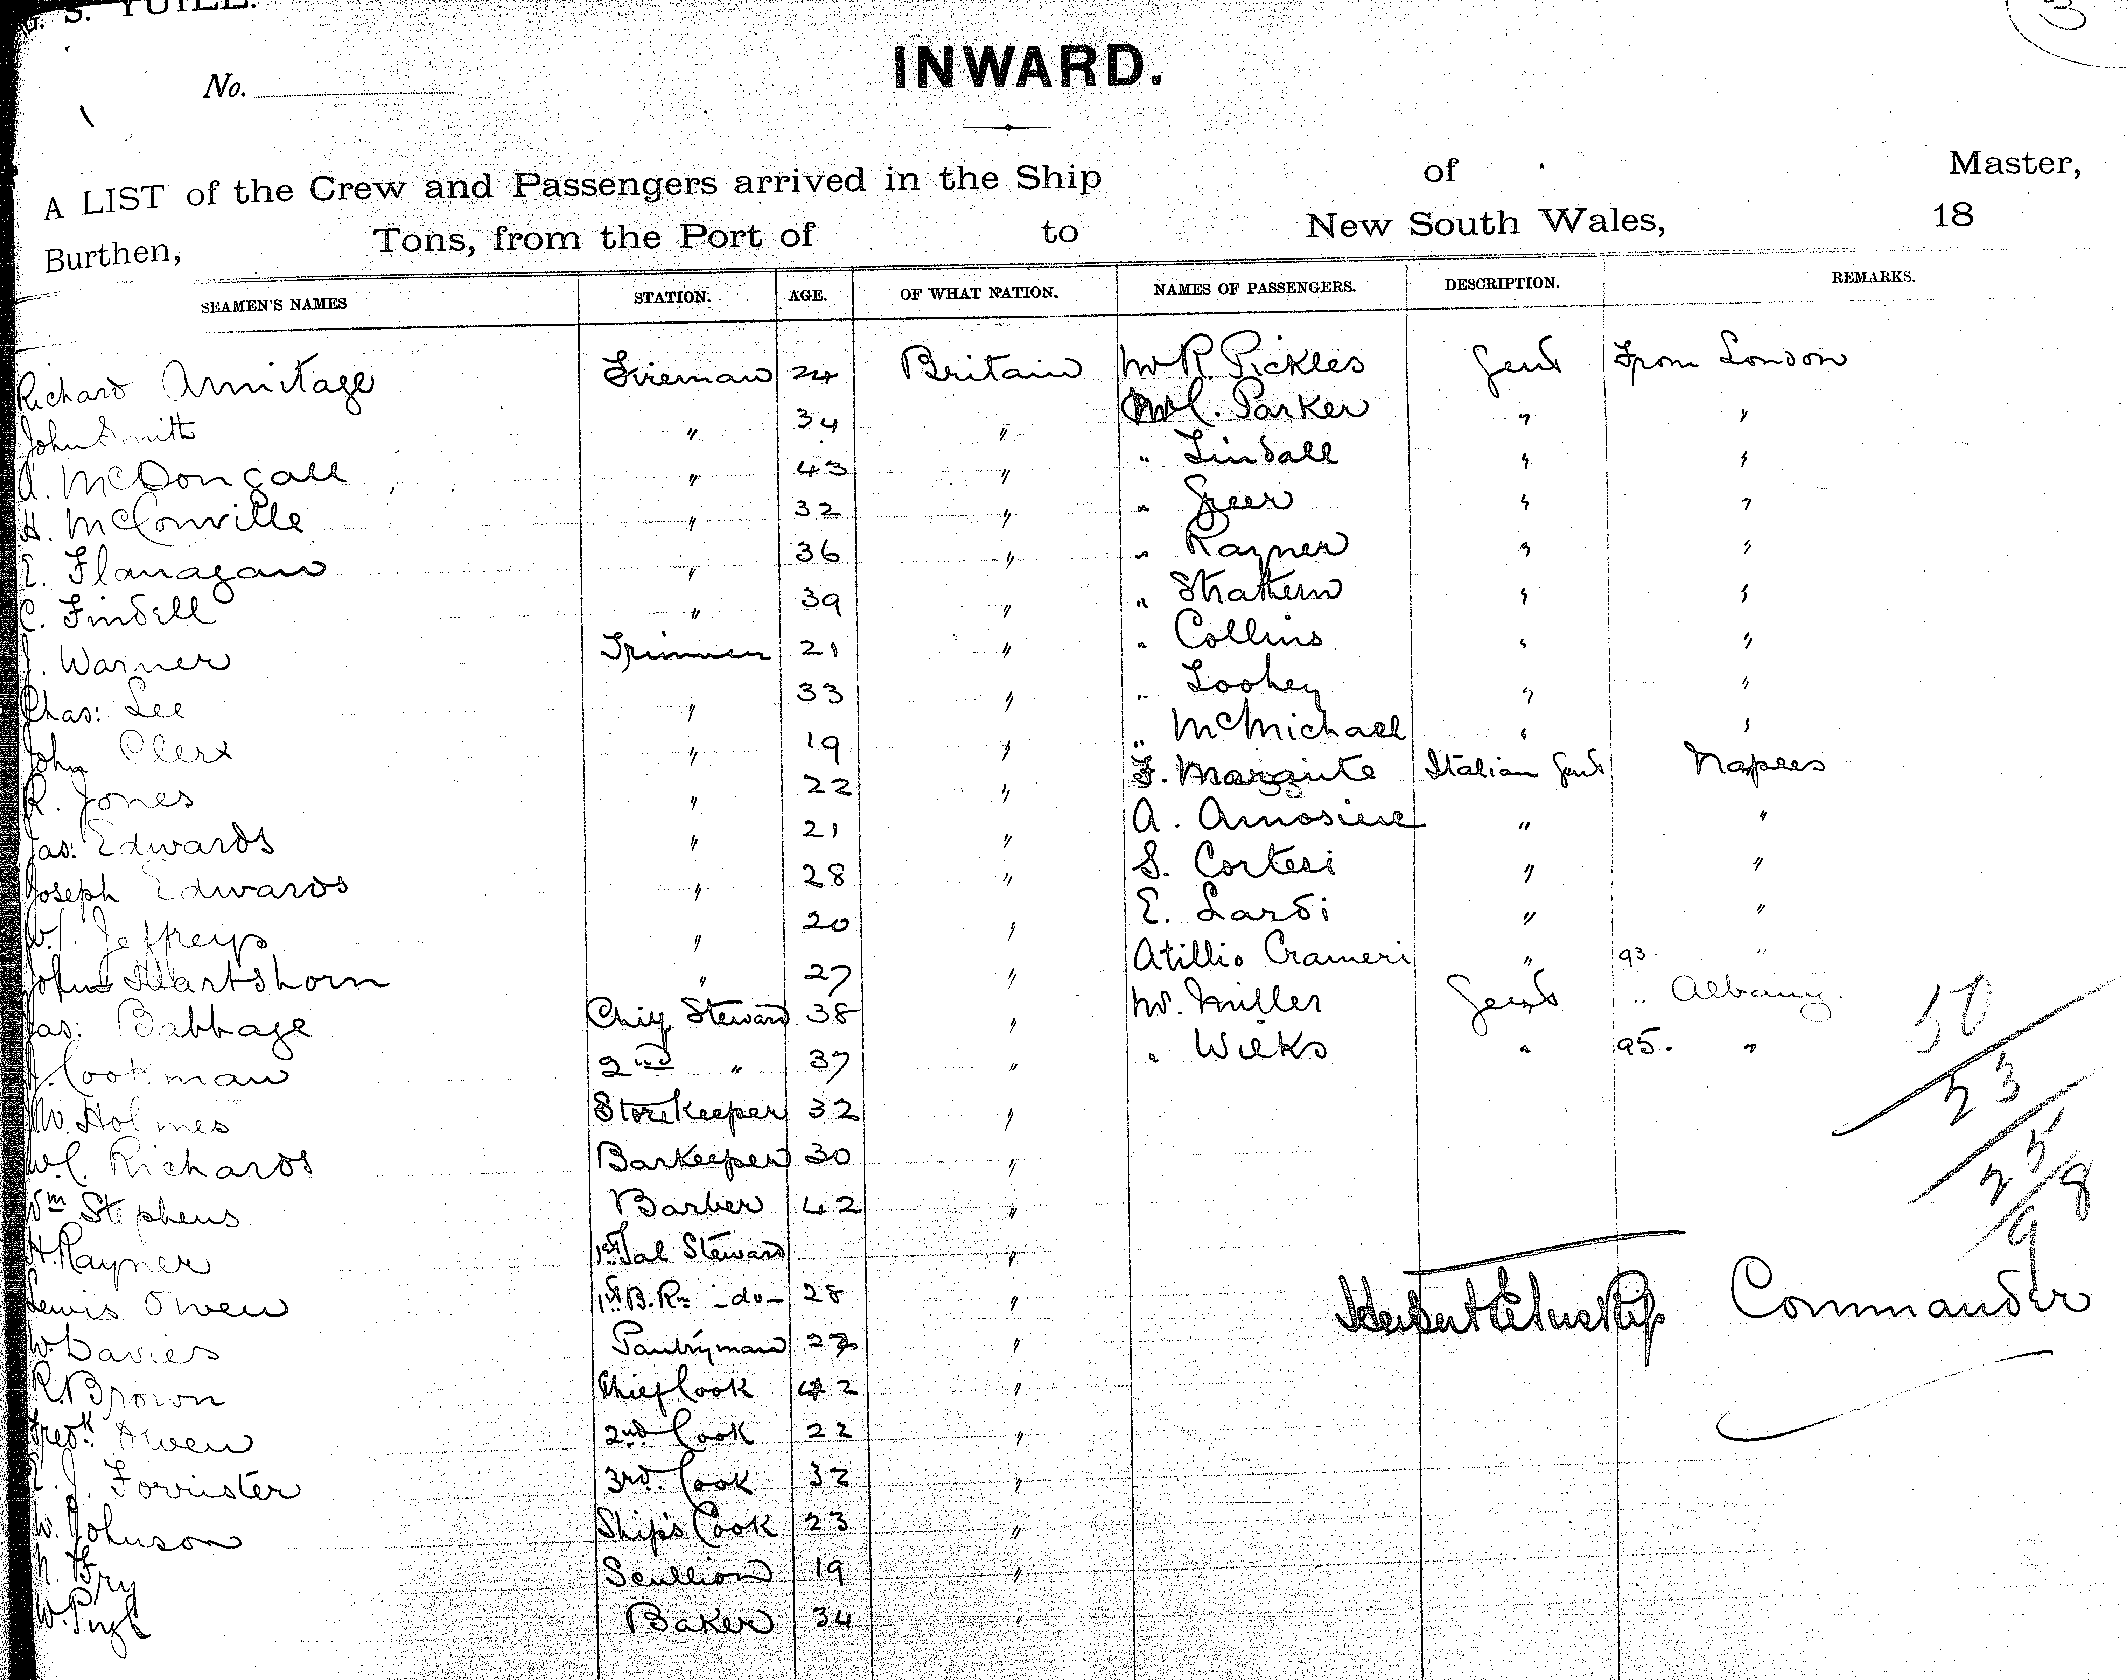 S. YUILL.
INWARD.
No.
A LIST of the Crew and Passengers arrived in the Ship of Master,
Burthen, Tons, from the Port of to New South Wales, 18
SEAMEN'S NAMES STATION. AGE. OF WHAT NATION. NAMES OF PASSENGERS. DESCRIPTION. REMARKS.
Richard Armitage Fireman 24 Britain Mr R. Pickles Gent From London
John Smith " 34 " Mr C. Parker " "
A. McDongall " 43 " " Tindall " "
H. McConville " 32 " " Greer " "
E. Flanagan " 36 " " Rayner " "
C. Findell " 39 " " "  "
J. Warner Trimmer 21 " " Collins " "
Chas: Lee " 33 " " Toohey " "
John Clerk " 19 " " McMichael " "
R. Jones " 22 " F. Italian Gent Naples
Jas: Edwards " 21 " A. " "
Joseph Edwards " 28 " S. Cortesi " "
W. Jeffreys " 20 " E. Lardi " "
John Hartshorn " 27 " Atillio Crameri " 93 "
Jas: Babbage Chief Steward 38 " Mr. Miller Gent " Albany
J. Cookman 2nd " 37 " " Wilks " 95. "
W. Holmes Storekeeper 32 "
W. C. Richards Barkeeper 30 "
Wm Stephens Barber 42 "
H. Rayner 1st Sal Steward "
Lewis Owen 1st B. Rm -do- 28 "
W. Davies Pantryman "
R. Brown Chief Cook 42 "
Fredk. Owen 2nd Cook 22 "
J. Forrister 3rd. Cook 32 "
W. Johnson Ship's Cook 23 "
Bry Scullion 19 "
W. Pugh Baker 34 "
50
23
25/8
9
Commander